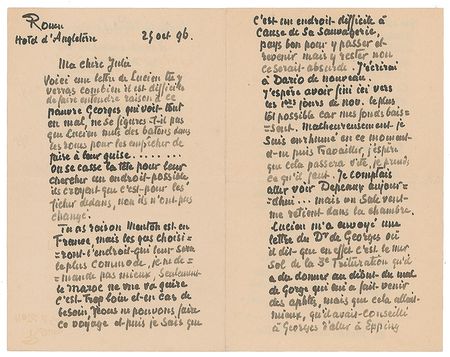 Rouen
Hotel d'Angleterre 25 oct 96.
Ma chère Julie
Voici une lettre de Lucien tu y
verras combien il est difficile
de faire entendre raison à ce
pauvre Georges qui voit tout
en mal, ne se figure-t-il pas
que Lucien mets des batons dans
les roues pour les empêcher de
faire à leur guise........
On se casse la tête pour leur
chercher un endroit possible
ils croyent que c'est pour les
ficher dedans, non ils n'ont pas
changé.
Tu as raison Menton est en
France, mais les gas choisi=
=ront l'endroit qui leur sera
le plus commode, je ne de=
=mande pas mieux, seulement
le Maroc ne me va guère
c'est trop loin et en cas de
besoin nous ne pouvons faire
ce voyage et puis je sais que
C'est un endroit difficile à
cause de sa sauvagerie,
pays bon pour y passer et
revenir mais y rester non
ce serait absurde. J'écrirai
à Dario de nouveau.
J'espère avoir fini ici vers
les 1ers jours de nov. le plus
tôt possible car mes fonds bais=
=sent. Malheureusement je
suis enrhumé en ce moment
et ne puis travailler, j'espère
que cela passera vite, je prends
ce qu'il faut. Je comptais
aller voir Depeaux aujour=
=dhui... mais un sale vent
me retient dans la chambre.
Lucien m'a envoyé une
lettre du Dr de Georges où
il dit que en effet c'est le mur.
sol de la 3e trituration qu'il
a du donner au début du mal
de Georges qui a fait venir
des aphtes, mais que cela allait
mieux, qu'il avait conseillé
à Georges d'aller à Epping